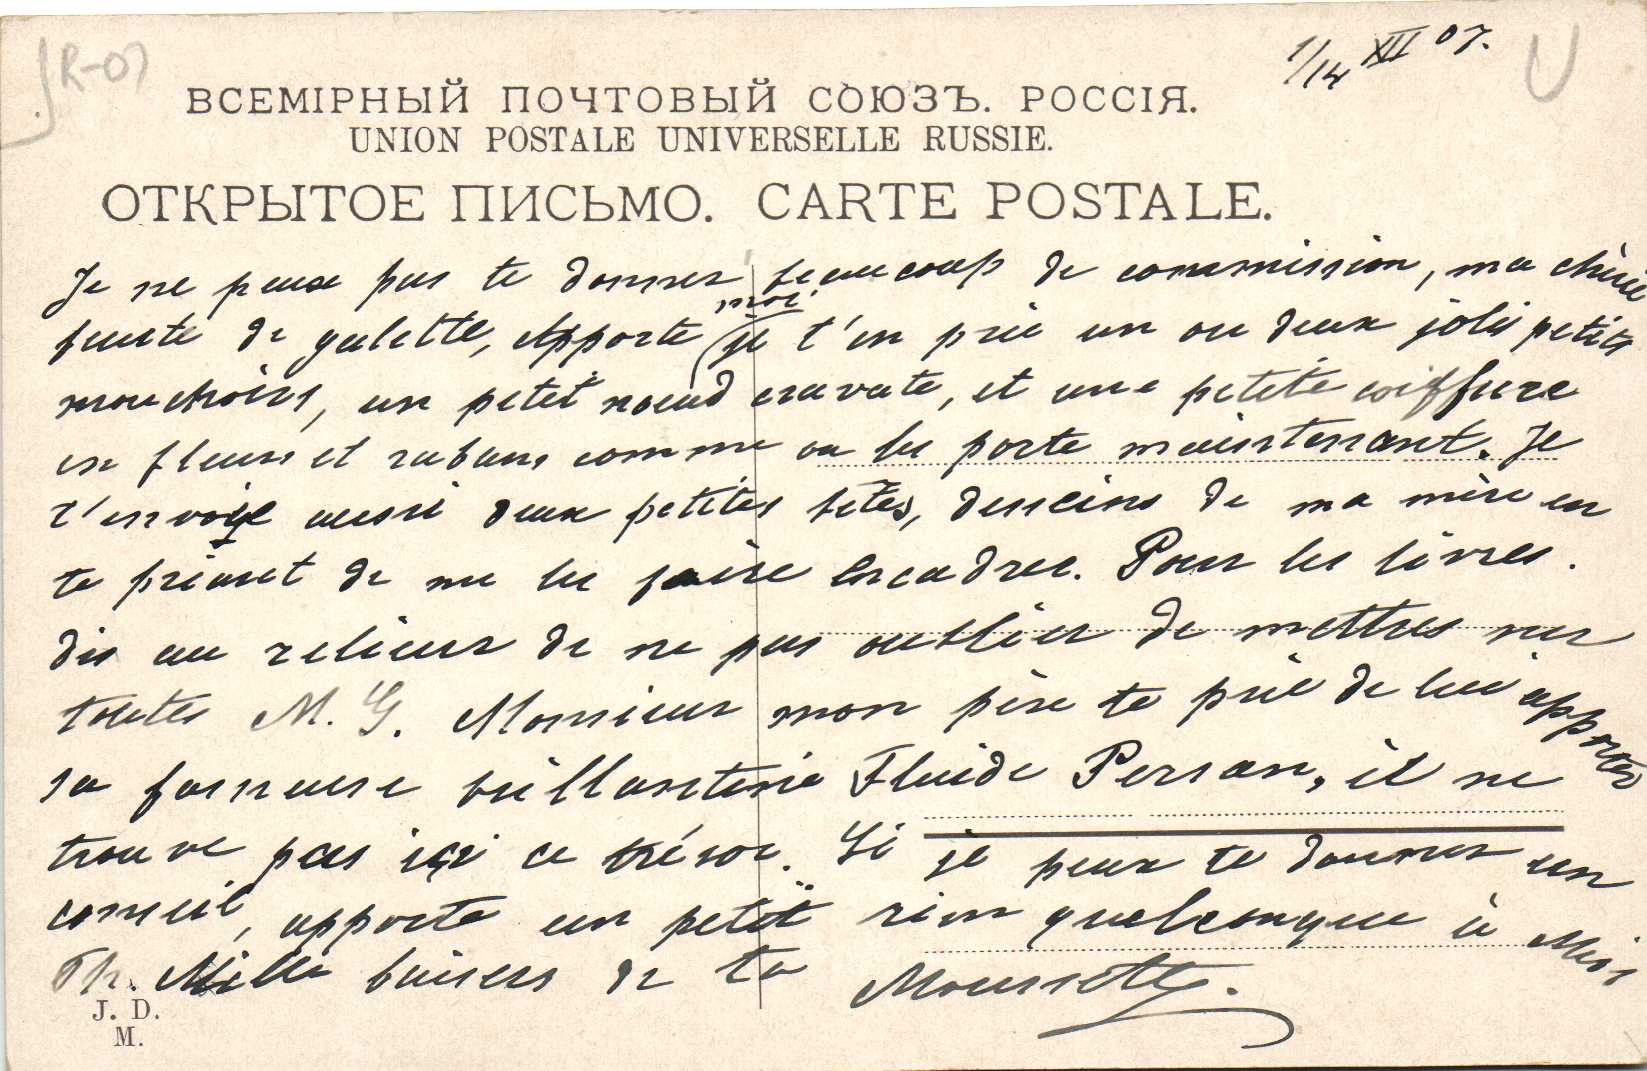 R-07
1/14 XII 07.
ВСЕМІРНЫЙ ПОЧТОВЫЙ СОЮЗЪ. РОССІЯ.
UNION POSTALE UNIVERSELLE RUSSIE.
ОТКРЫТОЕ ПИСЬМО. CARTE POSTALE.
Je ne peux pas te donner beaucoup de commission, ma chérie
faute de galette, Apporte moi (je t'en prie un ou deux jolis petits
mouchoirs, un petit noeud cravate, et une petite coiffure
en fleurs et rubans comme on les porte maintenant. Je
t'envoie aussi deux petites bêtes, desseins de ma mère en
te priant de me les faire encadrer. Pour les livres.
dis au relieur de ne pas oublier de mettres sur
toutes M. G. Monsieur mon père te prie de lui apporter
sa fameuse brillantine Fluide Persan, il ne
trouve pas içi ce trésor. Si je peux te donner un
conseil, apporte un petit rien quelconque à Miss
Th. Mille baisers de ta Moussette.
J. D.
M.